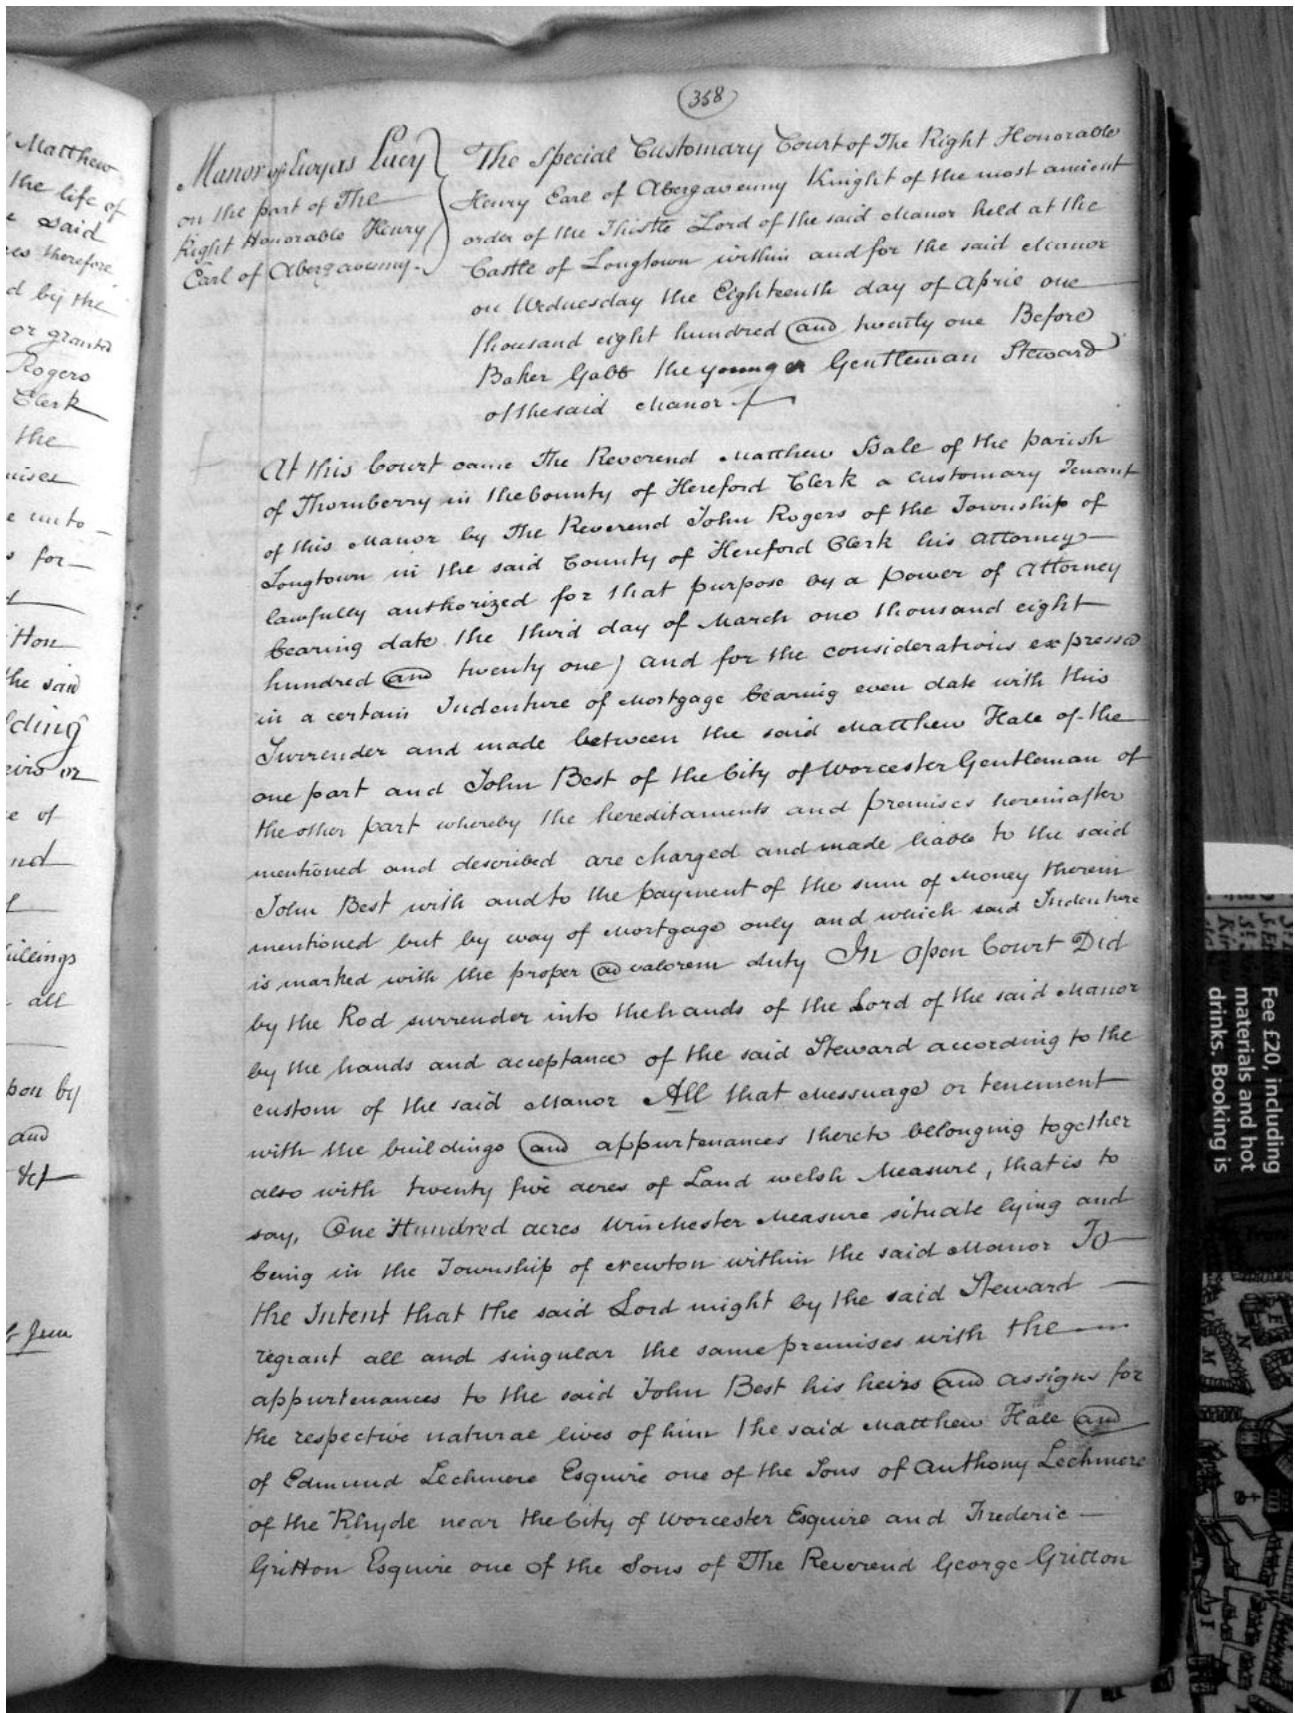 Matthew
the life of
said
therefore
d by the
or granted
Rogers
Clerk
the
unto
for
the said
lding
e of
nd
all
pon by
and
358
Manor of Ewyas Lacy
on the part of The
Right Honorable Henry
Earl of Abergavenny
The Special Customary Court of The Right Honorable
Henry Earl of Abergavenny Knight of the most ancient
order of the Thistle Lord of the said Manor held at the
Castle of Longtown within and for the said Manor
on Wednesday the Eighteenth day of April one
thousand eight hundred and twenty one Before
Baker Gabb the younger Gentleman Steward
of the said Manor
At this Court came The Reverend Matthew Hale of the parish
of Thornberry in the County of Hereford Clerk a customary Tenant
of this Manor by The Reverend John Rogers of the Township of
Longtown in the said County of Hereford Clerk his Attorney
lawfully authorized for that purpose by a power of Attorney
bearing date the third day of March one thousand eight
hundred and twenty one) and for the considerations expressed
in a certain Indenture of Mortgage bearing even date with this
Surrender and made between the said Matthew Hale of the
one part and John Best of the City of Worcester Gentleman of
the other part whereby the hereditaments and premises hereinafter
mentioned and described are charged and made liable to the said
John Best with and to the payment of the sum of Money therein
mentioned but by way of Mortgage only and which said Indenture
is marked with the proper ad valorem duty In open Court Did
by the Rod surrender into the hands of the Lord of the said Manor
by the hands and acceptance of the said Steward according to the
custom of the said Manor All that Messuage or tenement
with the buildings and appurtenances thereto belonging together
also with twenty five acres of Land welsh Measure, that is to
say, One Hundred acres Winchester Measure situate lying and
being in the Township of Newton within the said Manor To
the Intent that the said Lord might by the said Steward
regrant all and singular the same premises with the
appurtenances to the said John Best his heirs and assigns for
the respective natural lives of him the said Matthew Hale and
of Edmund Lechmere Esquire one of the Sons of Anthony Lechmere
of the Rhyde near the City of Worcester Esquire and Frederic
Gritton Esquire one of the Sons of The Reverend George Gritton
Fee £20, including
materials and hot
drinks. Booking is